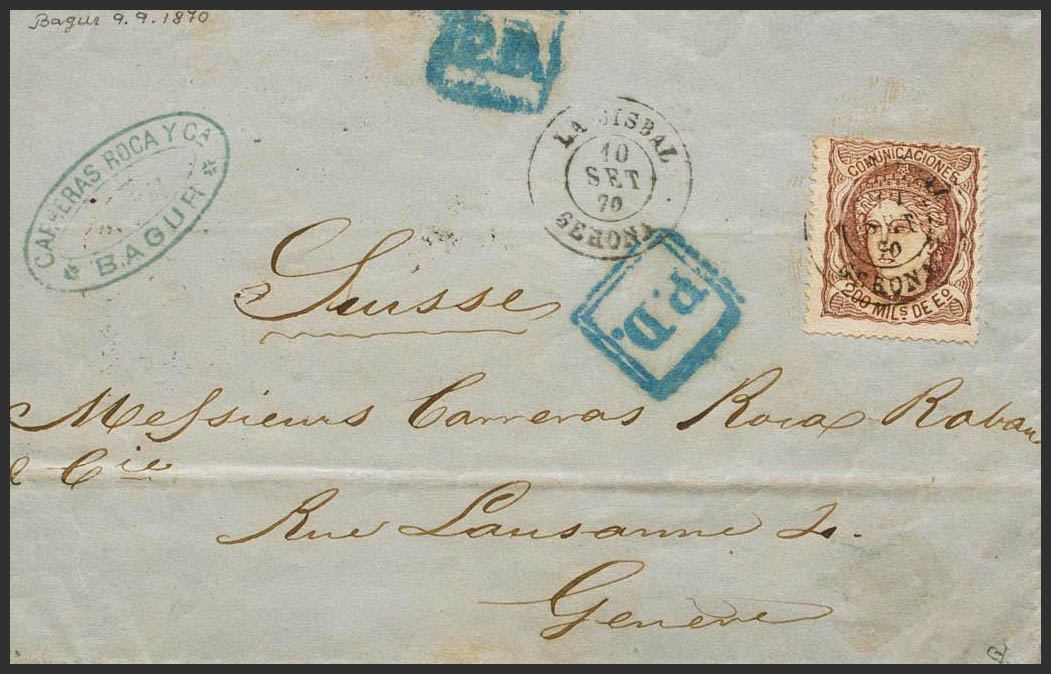 Bagur 9.9.1870
P.D.
CARRERAS ROCA Y CA
BAGUR
LA BISBAL
10
SET
70
GERONA
COMUNICACIONES
GERONA
200 MILS DE EO
P.D.
Suisse
Messieurs Carreras Roca
& Cie
Rue Lausanne
Genève